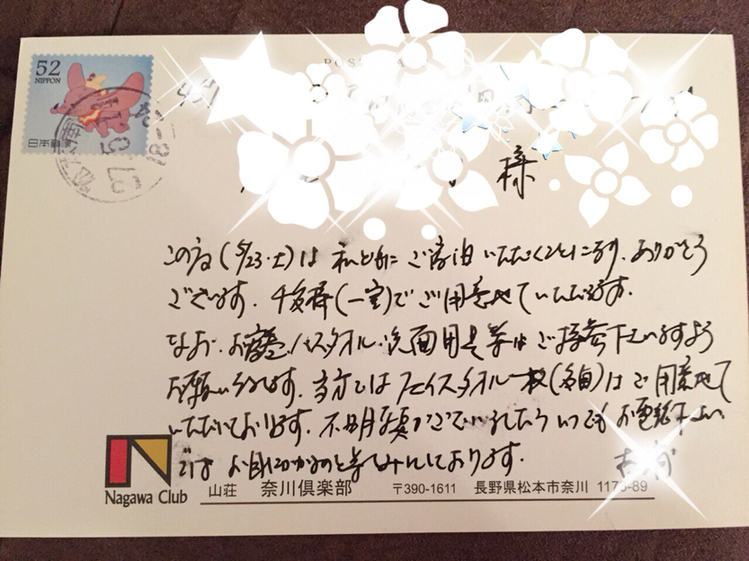 52
NIPPON
日本郵便
POST
様
この度(5/23・土)は 私どもに ご宿泊 いただくことになり、ありがとう
ございます。(一室)でご用意させていただきます。
なお、お寝巻、バスタオル、洗面用具等はご持参下さいますよう
お願いいたします。当方ではフェイスタオル一枚(各自)はご用意させて
いただいております。不明な点がございましたらいつでもお電話下さい
ではお目にかかるのを楽しみにしております。
Nagawa Club
山荘 奈川倶楽部 〒390-1611 長野県松本市奈川 1173-89